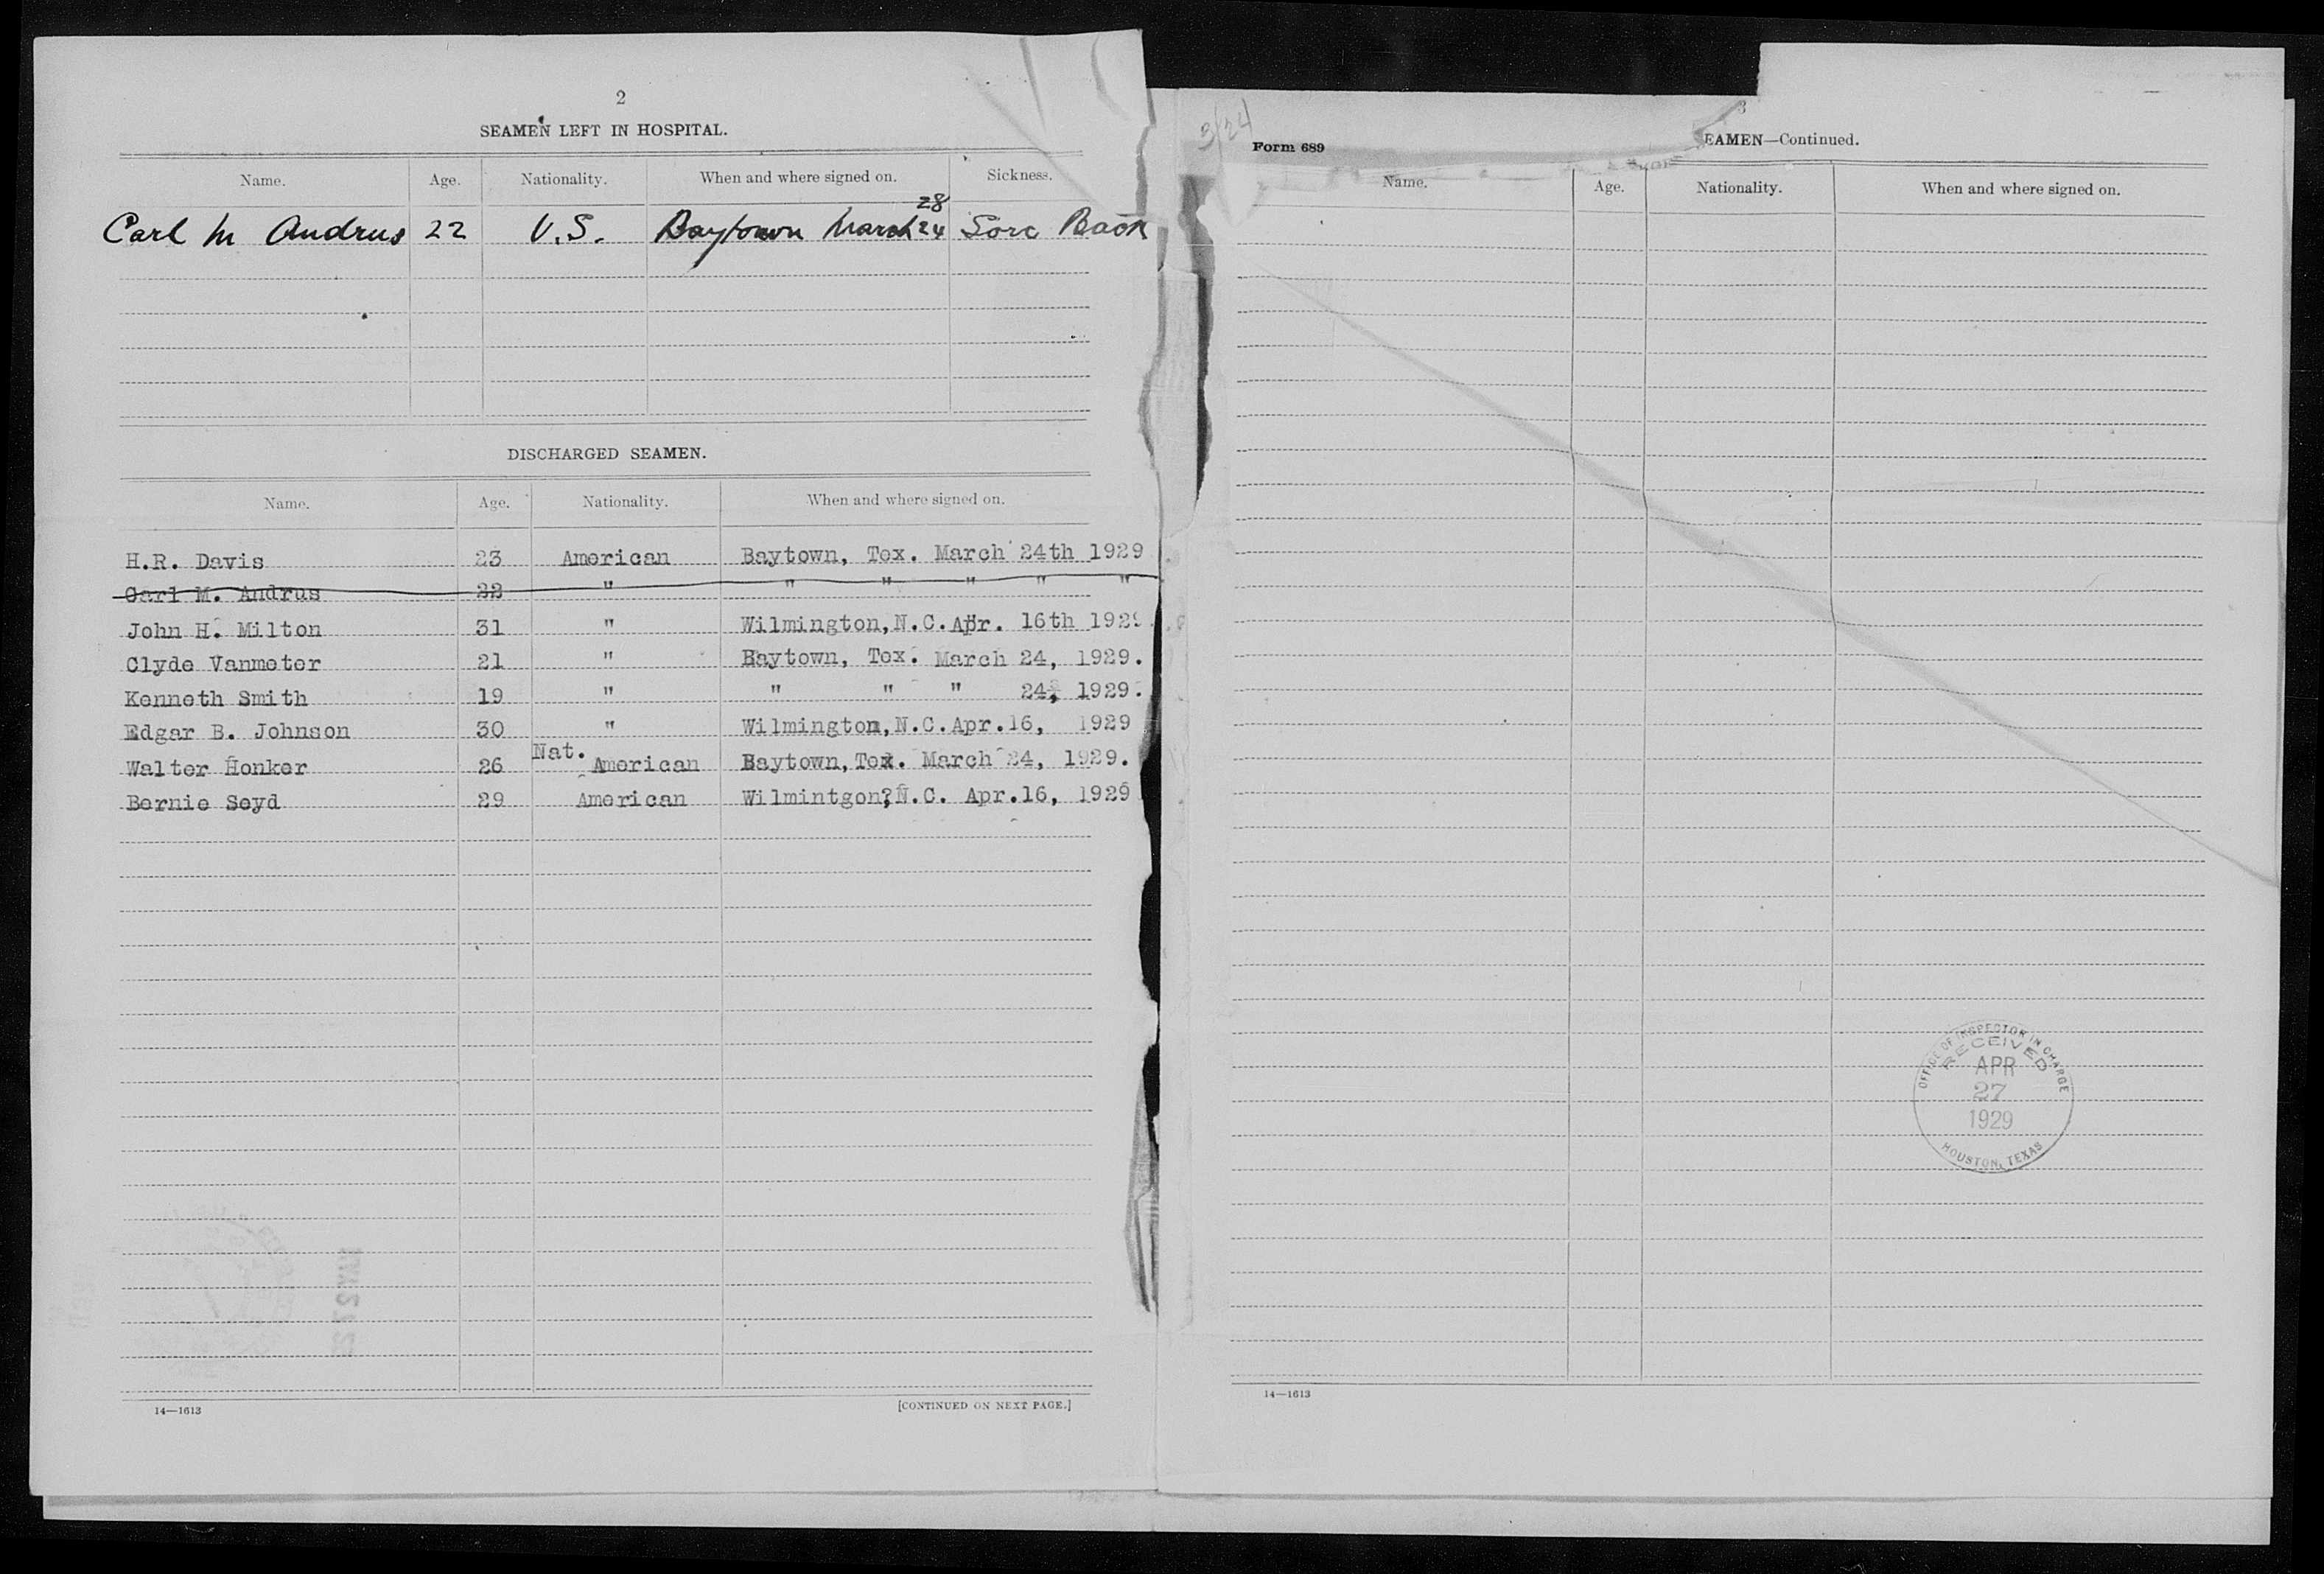 2
SEAMEN LEFT IN HOSPITAL.
Name. Age. Nationality. When and where signed on. Sickness.
28
Carl M Andrus 22 U.S. Baytown March 24 Sore Back
DISCHARGED SEAMEN.
Name. Age. Nationality. When and where signed on.
H.R. Davis 23 American Baytown, Tex. March 24th 1929
Carl M. Andrus 22 " " " " " "
John H. Milton 31 " Wilmington, N.C. Apr. 16th 1929
Clyde Vanmeter 21 " Baytown, Tex. March 24, 1929.
Kenneth Smith 19 " " " " 24, 1929.
Edgar B. Johnson 30 " Wilmington, N.C. Apr. 16, 1929
Walter Honker 26 Nat. American Baytown, Tex. March 24, 1929.
Bernie Seyd 29 American Wilmintgon?N.C. Apr.16, 1929
14—1613 [CONTINUED ON NEXT PAGE.]
3/24
3
Form 689
EAMEN—Continued.
Name. Age. Nationality. When and where signed on.
OFFICE OF INSPECTOR IN CHARGE
RECEIVED
APR
27
1929
HOUSTON, TEXAS
14—1613